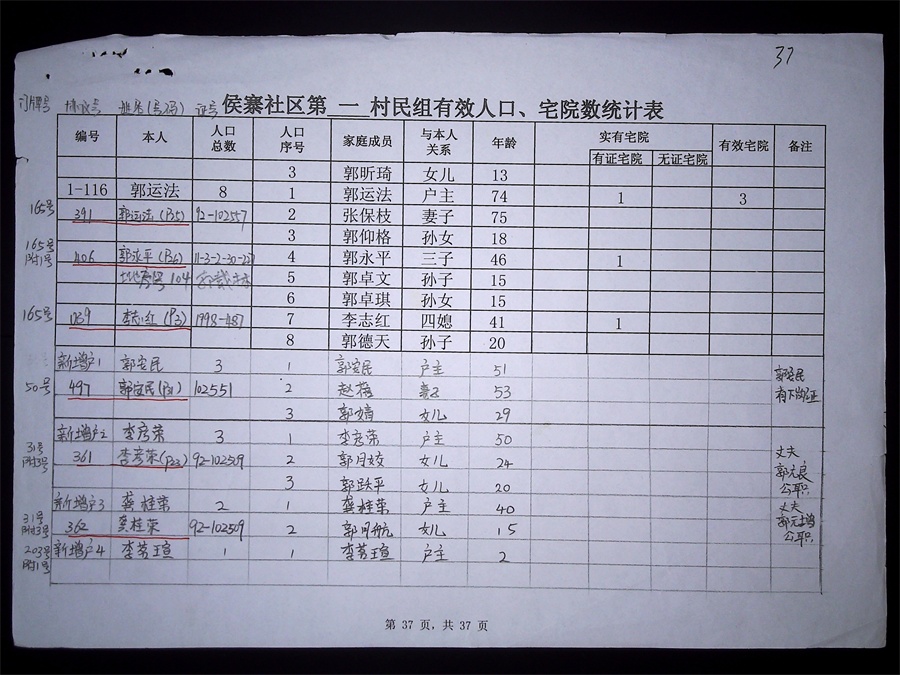 37
门牌号 姓名(号码) 证号 侯寨社区第 一 村民组有效人口、宅院数统计表
编号 本人 人口总数 人口序号 家庭成员 与本人关系 年龄 实有宅院 有效宅院 备注
有证宅院 无证宅院
3 郭昕琦 女儿 13
1-116 郭运法 8 1 郭运法 户主 74 1 3
165号 391 郭运法(B5) 92-102557 2 张保枝 妻子 75
3 郭仰格 孙女 18
165号附1号 406 郭永平(B6) 11-3-2-30-227 4 郭永平 三子 46 1
104 5 郭卓文 孙子 15
6 郭卓琪 孙女 15
165号 1139 李志红(P3) 1998-487 7 李志红 四媳 41 1
8 郭德天 孙子 20
新增户1 郭安民 3 1 郭安民 户主 51 郭安民
50号 497 郭安民(B1) 102551 2 赵梅 妻子 53 有下岗证
3 郭婧 女儿 29
新增户2 李彦荣 3 1 李彦荣 户主 50
31号附3号 361 李彦荣(P23) 92-102509 2 郭月姣 女儿 24 丈夫郭元良公职
3 郭跃平 女儿 20
新增户3 龚桂荣 2 1 龚桂荣 户主 40 丈夫
31号附3号 362 龚桂荣 92-102509 2 郭月航 女儿 15 郭元增公职
203号附1号 新增户4 李茗瑄 1 1 李茗瑄 户主 2
第 37 页，共 37 页